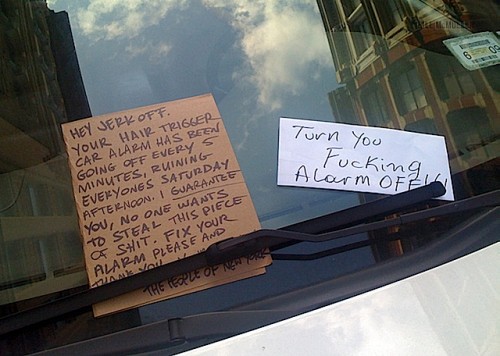 HEY JERKOFF.
YOUR HAIR TRIGGER
CAR ALARM HAS BEEN
GOING OFF EVERY 5
MINUTES, RUINING
EVERYONES SATURDAY
AFTERNOON. I GUARANTEE
YOU, NO ONE WANTS
TO STEAL THIS PIECE
OF SHIT. FIX YOUR
ALARM PLEASE AND
THANK YOU.
THE PEOPLE OF NEW YORK
Turn You
Fucking
Alarm OFF!!
6 09